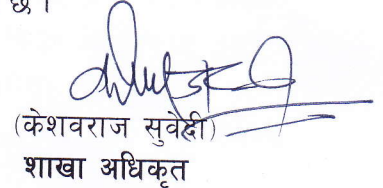 छ ।
(केशवराज सुवेदी)
शाखा अधिकृत